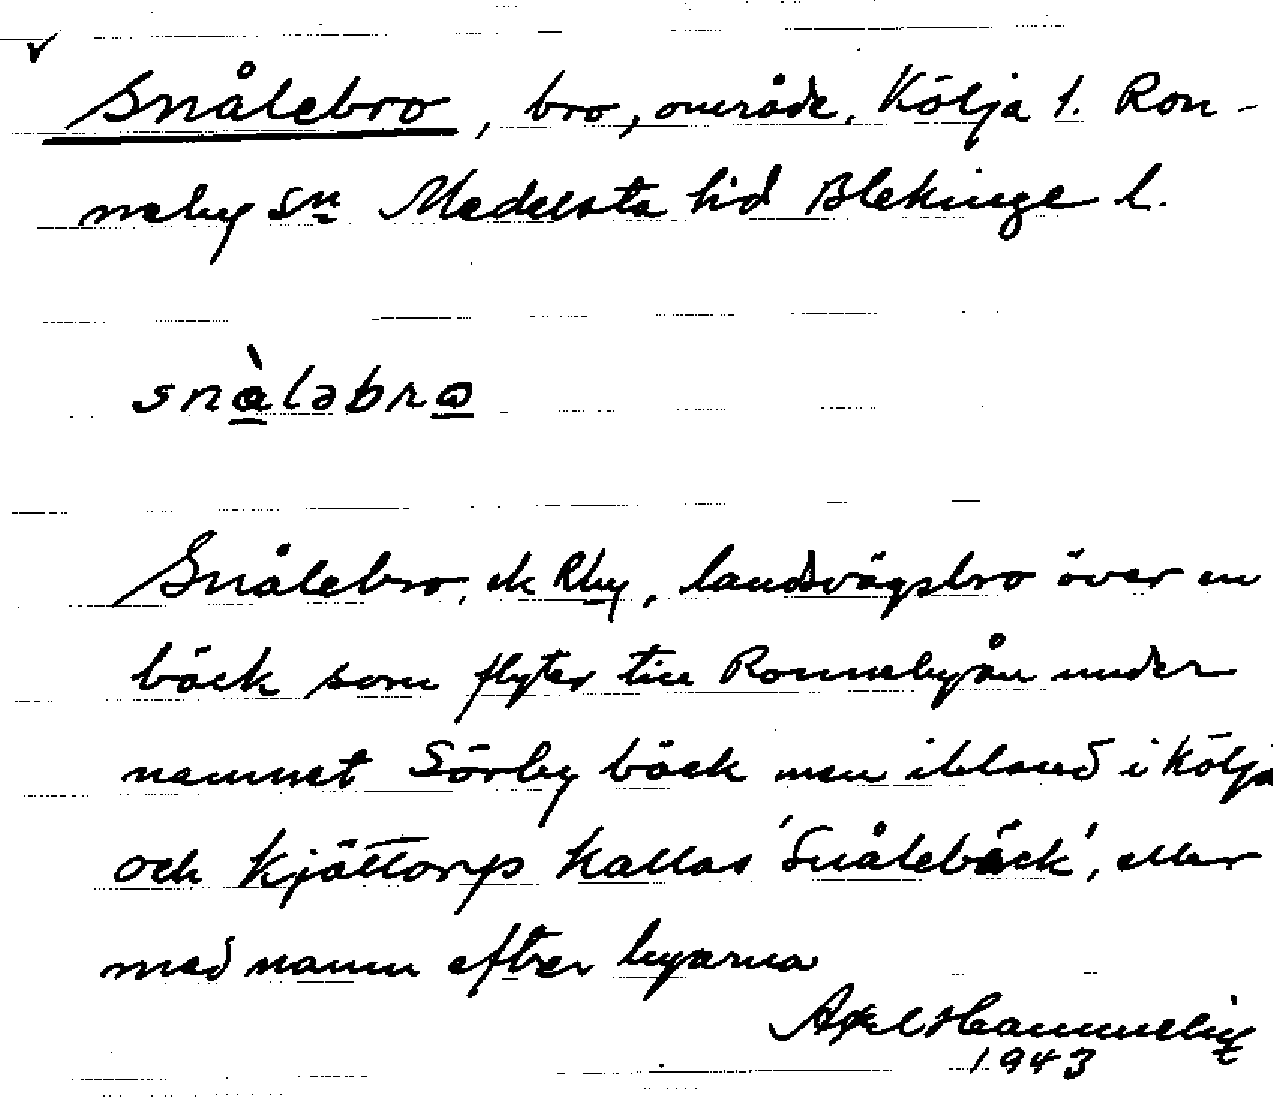 Snålebro, bro, område, Kölja 1. Ron-
neby Sn Medelsta hd Blekinge l.
snàləbro
Snålebro, ek Rby, landsvägsbro över en
bäck som flyter till Ronnebyån under
namnet Sörby bäck men ibland i Kölja
och Kjättorp kallas 'Snålebäck', eller
med namn efter byarna
Axel
1943